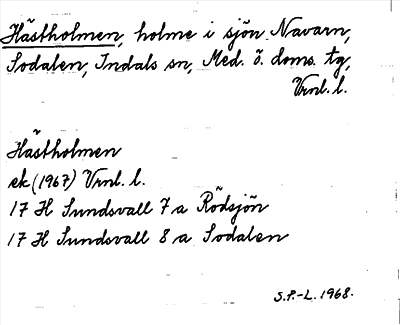 Hästholmen, holme i sjön Navarn,
Sodalen, Indals sn, Med. ö. doms. tg,
Vrnl. l.
Hästholmen
ek (1967) Vrnl. l.
17 H Sundsvall 7 a Rödsjön
17 H Sundsvall 8 a Sodalen
S.P.-L. 1968.